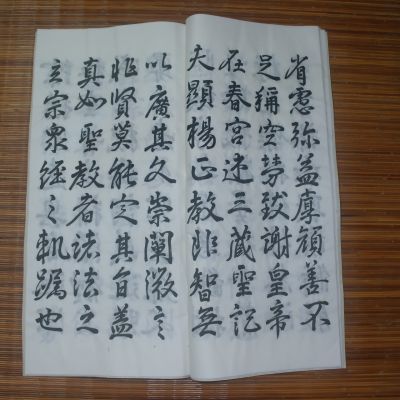 省慮弥益厚顏善不
足稱空勞致謝皇帝
在春宮述三藏聖記
夫顯揚正教非智無
以廣其文崇闡微言
非賢莫能定其旨蓋
真如聖教者諸法之
玄宗衆經之軌躅也